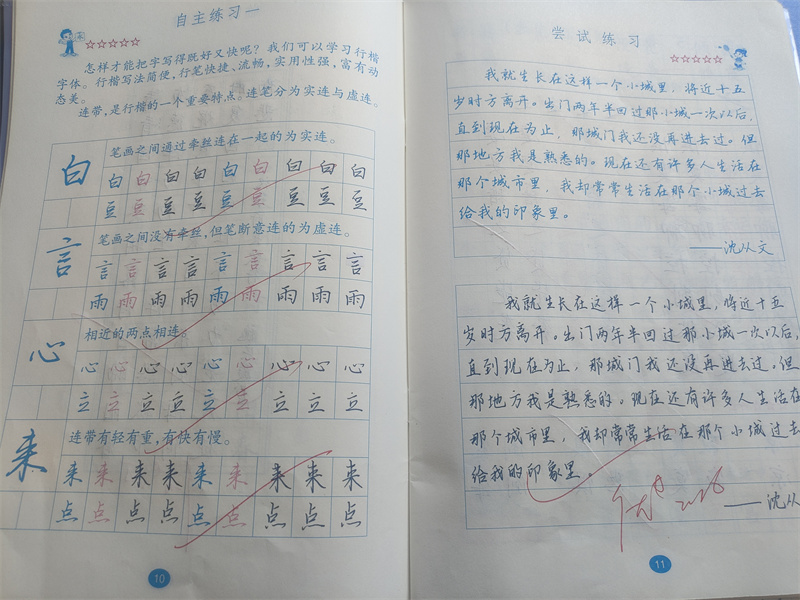 自主练习一
怎样才能把字写得既好又快呢？我们可以学习行楷
字体。行楷写法简便，行笔快捷、流畅，实用性强，富有动
态美。
连带，是行楷的一个重要特点。连笔分为实连与虚连。
笔画之间通过牵丝连在一起的为实连。
白 白 白 白 白 白 白 白 白 白
豆 豆 豆 豆 豆 豆 豆 豆 豆
笔画之间没有牵丝，但笔断意连的为虚连。
言 言 言 言 言 言 言 言 言 言
雨 雨 雨 雨 雨 雨 雨 雨 雨
相近的两点相连。
心 心 心 心 心 心 心 心 心 心
立 立 立 立 立 立 立 立 立
连带有轻有重，有快有慢。
来 来 来 来 来 来 来 来 来 来
点 点 点 点 点 点 点 点 点
10
尝试练习
我就生长在这样一个小城里，将近十五
岁时方离开。出门两年半回过那小城一次以后，
直到现在为止，那城门我还没再进去过。但
那地方我是熟悉的。现在还有许多人生活在
那个城市里，我却常常生活在那个小城过去
给我的印象里。
——沈从文
我就生长在这样一个小城里，将近十五
岁时方离开。出门两年半回过那小城一次以后，
直到现在为止，那城门我还没再进去过。但
那地方我是熟悉的。现在还有许多人生活在
那个城市里，我却常常生活在那个小城过去
给我的印象里。
——沈从
11